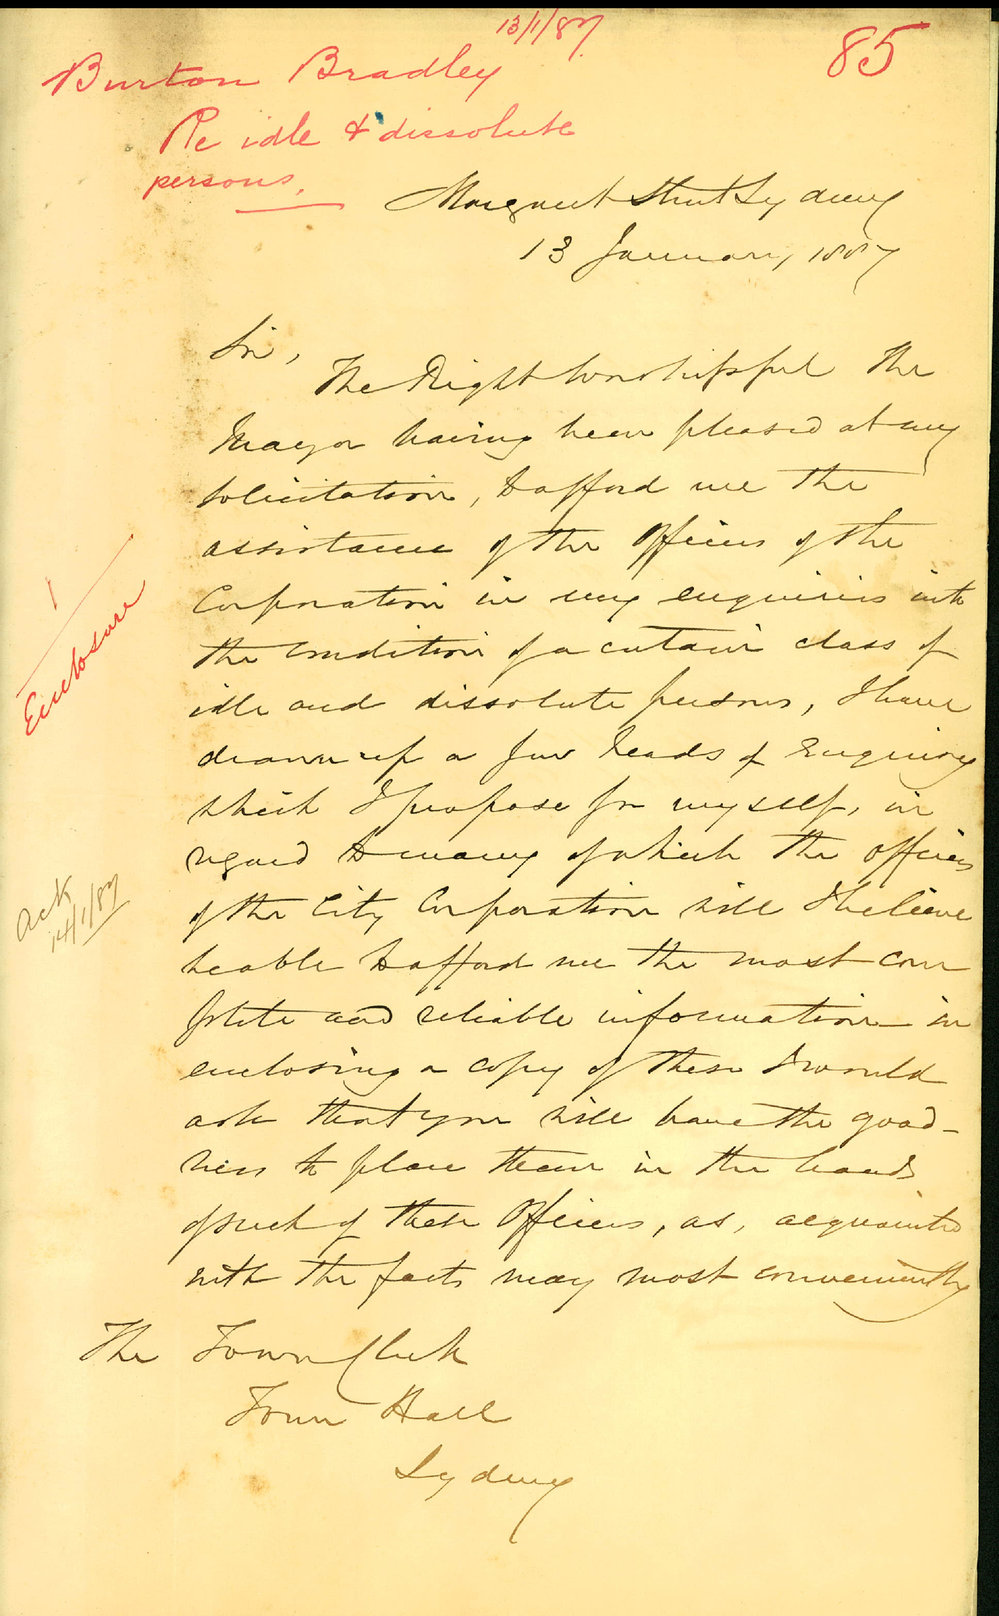 13/1/87
85
Burton Bradley
Re idle & dissolute
persons.
Margaret Street Sydney
13 January, 1887
Sir,
The Right Worshipful the
Mayor having been pleased at my
solicitation, to afford me the
assistance of the Officers of the
Corporation in my enquiries into
the condition of a certain class of
idle and dissolute persons, I have
drawn up a few heads of Enquiry
which I propose for myself, in
regard to many of which the officers
of the City Corporation will I believe
be able to afford me the most com
plete and reliable information - in
enclosing a copy of these I would
ask that you will have the good-
ness to place them in the hands
of such of these Officers, as, acquainted
with the facts may most conveniently
The Town Clerk
Town Hall
Sydney
1
Enclosure
Ack
14/1/87